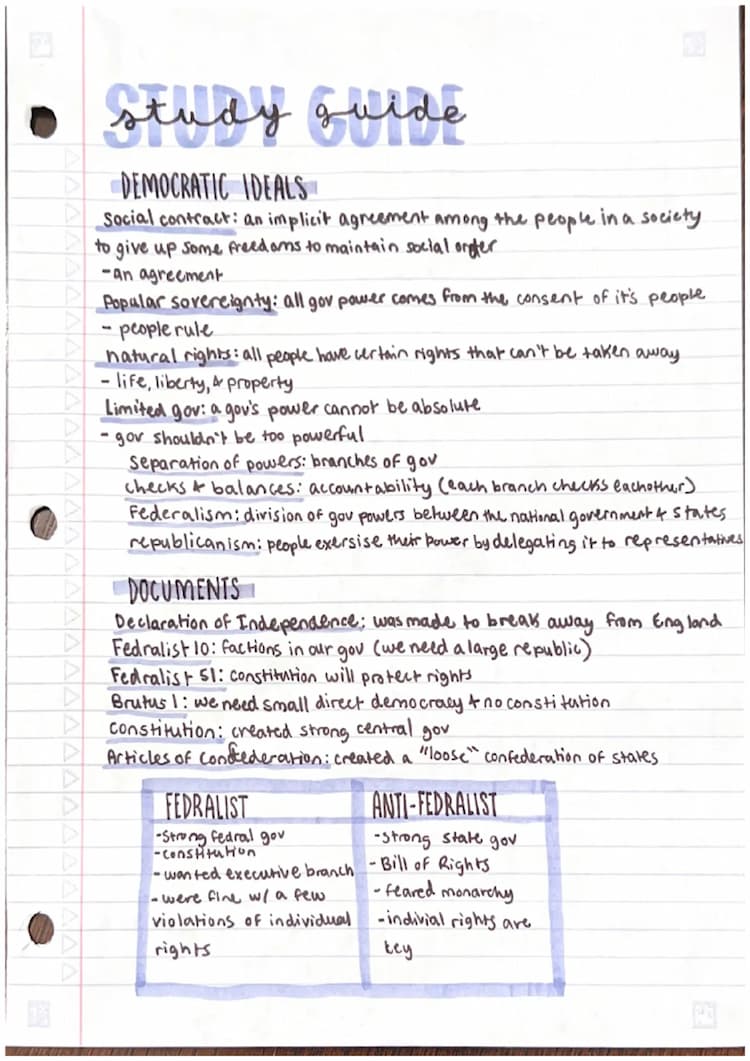 STUDY GUIDE
study guide
DEMOCRATIC IDEALS
Social contract: an implicit agreement among the people in a society
to give up some freedoms to maintain social order
-an agreement
Popular sovereignty: all gov power comes from the consent of it's people
- people rule
natural rights: all people have certain rights that can't be taken away
- life, liberty, & property
Limited gov: a gov's power cannot be absolute
- gov shouldn't be too powerful
Separation of powers: branches of gov
checks & balances: accountability (each branch checks eachother)
Federalism: division of gov powers between the national government & states
republicanism: people exersise their power by delegating it to representatives
DOCUMENTS
Declaration of Independence: was made to break away from England
Fedralist 10: factions in our gov (we need a large republic)
Fedralist 51: constitution will protect rights
Brutus 1: we need small direct democracy & no constitution
Constitution: created strong central gov
Articles of Confederation: created a "loose" confederation of states
FEDRALIST
-Strong fedral gov
-constitution
- wanted executive branch
- were fine w/ a few
violations of individual
rights
ANTI-FEDRALIST
-strong state gov
- Bill of Rights
- feared monarchy
-indivial rights are
key